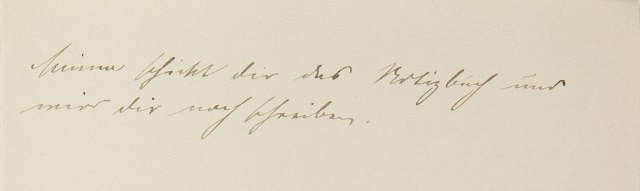 Minna schickt dir das Notizbuch und
wird dir noch schreiben.